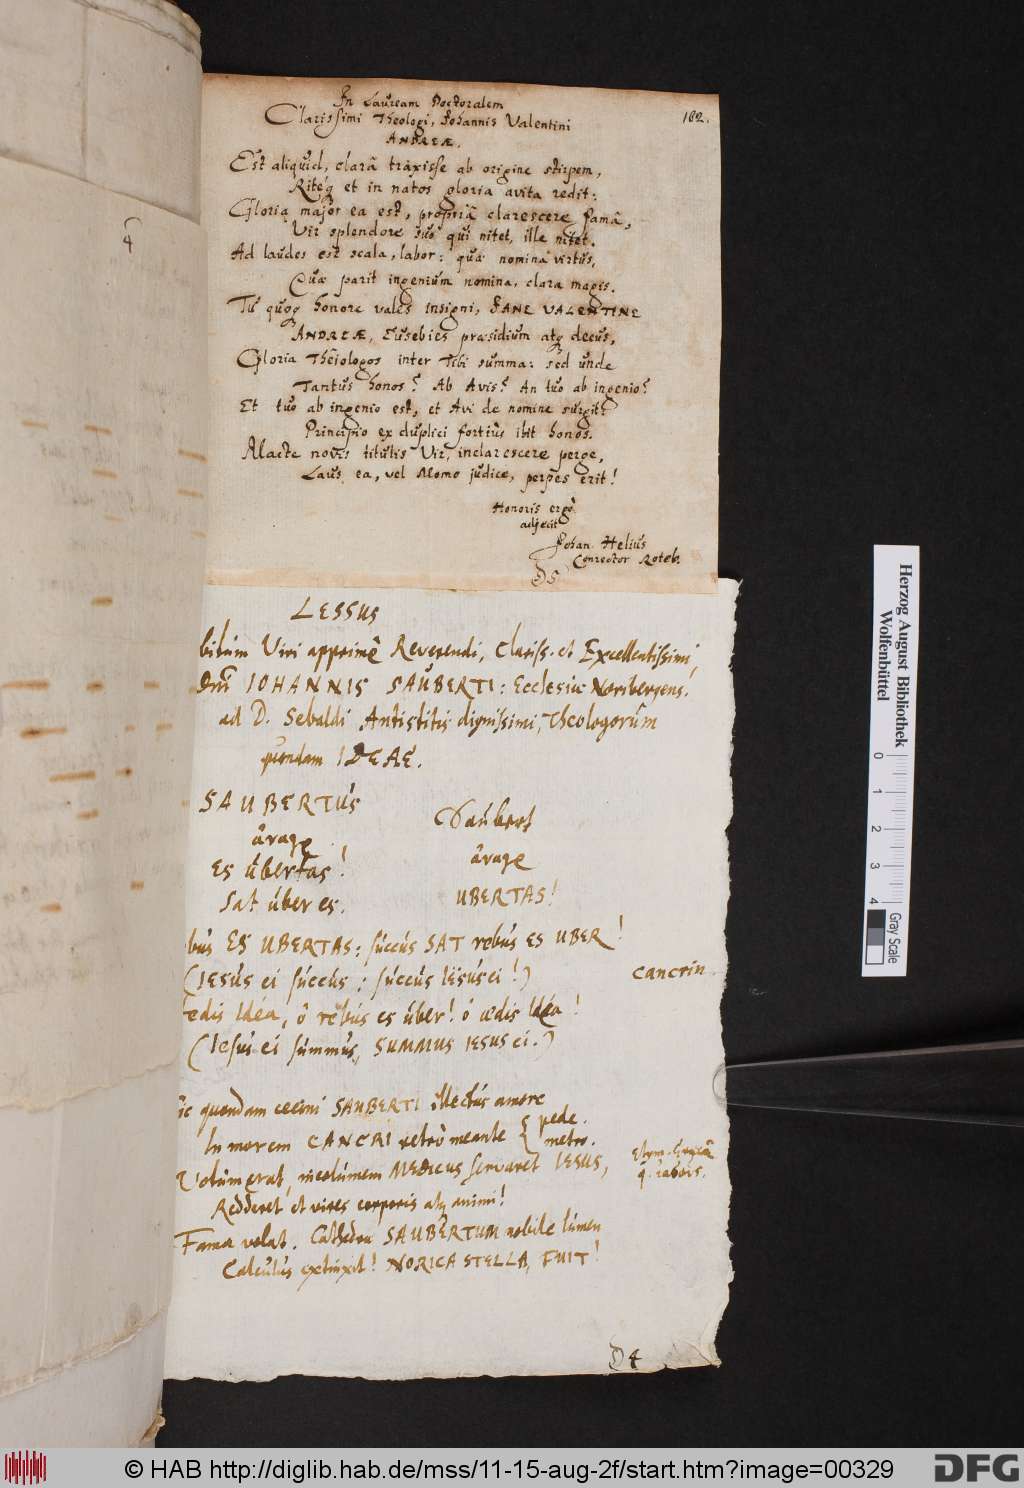 In Lauream Doctoralem
Clarissimi Theologi, Johannis Valentini
ANDREÆ.
162.
Est aliquid, clarâ traxisse ab origine stirpem,
Riteq et in natos gloria avita redit:
Gloria major ea est, propriâ clarescere famâ,
Vir splendore suo qui nitet, ille nitet.
Ad laudes est scala, labor: quæ nomina virtus,
Quæ parit ingenium nomina, clara magis.
Tu quoq honore vales insigni, JANE VALENTINE
ANDREÆ, Eusebies præsidium atq decus,
Gloria Theiologos inter Tibi summa: sed unde
Tantus honos? Ab Avis? An tuo ab ingenio?
Et tuo ab ingenio est, et Avi de nomine surgit:
Principio ex duplici fortius ibit honos.
Macte novis titulis Vir, inclarescere perge,
Laus ea, vel Momo judice, perpes erit!
Honoris ergò
adjecit
Johan. Helius
Conrector Roteb.
D5
LESSUS
bitum Viri apprimè Reverendi, Clariss. et Excellentissimi,
Dni IOHANNIS SAUBERTI: Ecclesiæ Noribergens.
ad D. Sebaldi Antistitis dignissimi, Theologorum
quondam IDEAE.
SAUBERTUS
ârage
ES ubertas!
Sat uber es.
Saubert
ârage
UBERTAS!
bus ES UBERTAS: succus SAT rebus ES UBER!
(IESUS ei succus; succus Iesus ei!)
Cancrin.
edis Idéa, ô rebus es uber! ô ædis Idéa!
(Iesus ei summus, SUMMUS IESUS ei.)
ic quondam cecini SAUBERTI illectus amore
In morem CANCRI retrò meante { pede.
metro.
Votum erat, incolumem MEDICUS servaret IESUS,
Redderet et vires corporis atq animi!
Fama volat. Cathedræ SAUBERTUM nobile lumen
Calculus extinxit! NORICA STELLA, FUIT!
D4
Herzog August Bibliothek
Wolfenbüttel
0 1 2 3 4
Gray Scale
© HAB http://diglib.hab.de/mss/11-15-aug-2f/start.htm?image=00329
DFG